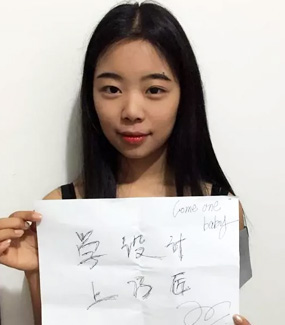 Come one
baby
学设计
上